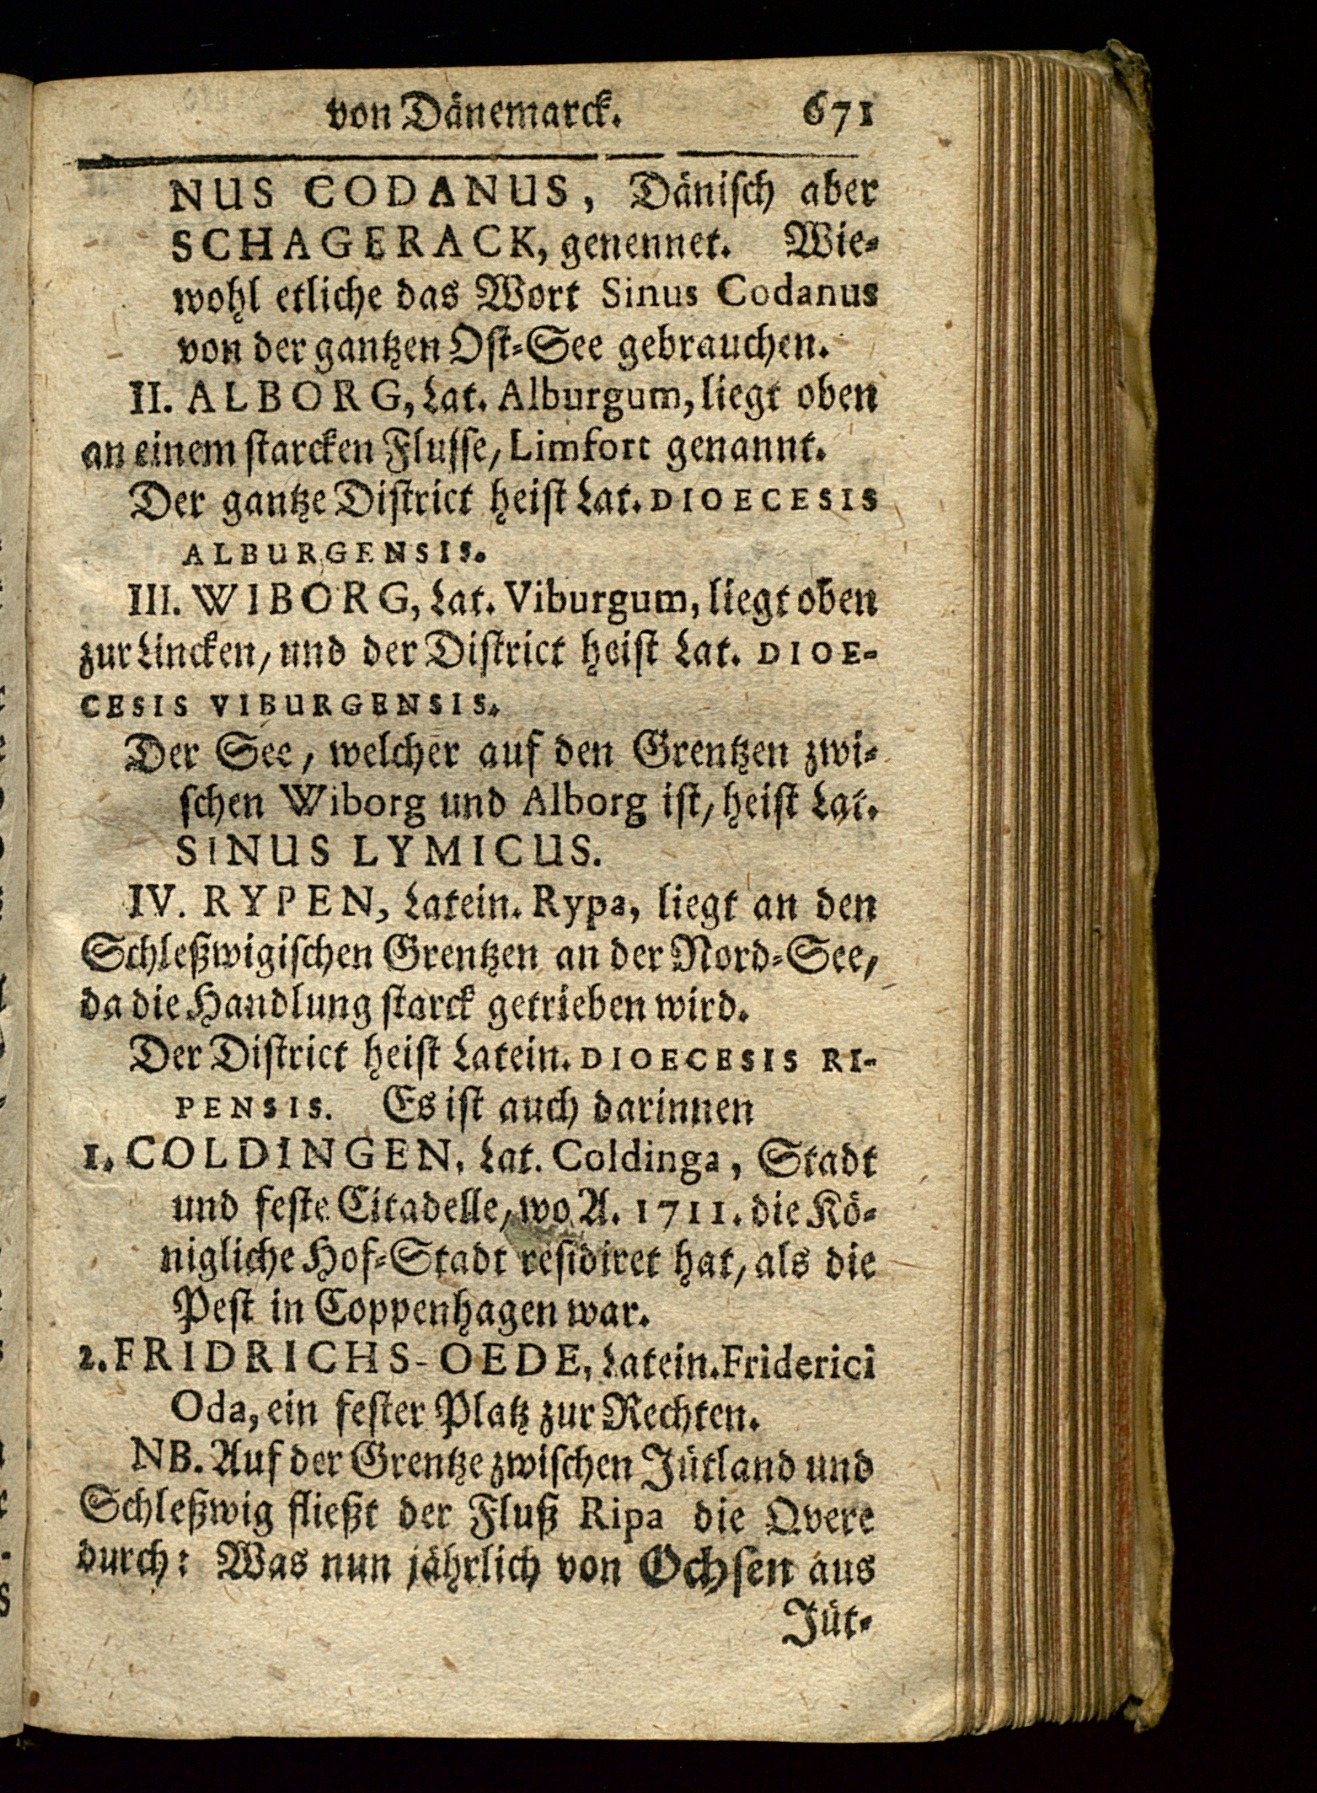 von Dänemarck. 671
NUS CODANUS, Dänisch aber
SCHAGERACK, genennet. Wie-
wohl etliche das Wort Sinus Codanus
von der gantzen Ost-See gebrauchen.
II. ALBORG, Lat. Alburgum, liegt oben
an einem starcken Flusse, Limfort genannt.
Der gantze District heist Lat. DIOECESIS
ALBURGENSIS.
III. WIBORG, Lat. Viburgum, liegt oben
zur Lincken, und der District heist Lat. DIOE-
CESIS VIBURGENSIS.
Der See, welcher auf den Grentzen zwi-
schen Wiborg und Alborg ist, heist Lat.
SINUS LYMICUS.
IV. RYPEN, Latein. Rypa, liegt an den
Schleßwigischen Grentzen an der Nord-See,
da die Handlung starck getrieben wird.
Der District heist Latein. DIOECESIS RI-
PENSIS. Es ist auch darinnen
1. COLDINGEN, Lat. Coldinga, Stadt
und feste Citadelle, wo A. 1711. die Kö-
nigliche Hof-Stadt residiret hat, als die
Pest in Coppenhagen war.
2. FRIDRICHS-OEDE, Latein. Friderici
Oda, ein fester Platz zur Rechten.
NB. Auf der Grentze zwischen Jütland und
Schleßwig fließt der Fluß Ripa die Qvere
durch: Was nun jährlich von Ochsen aus
Jüt-